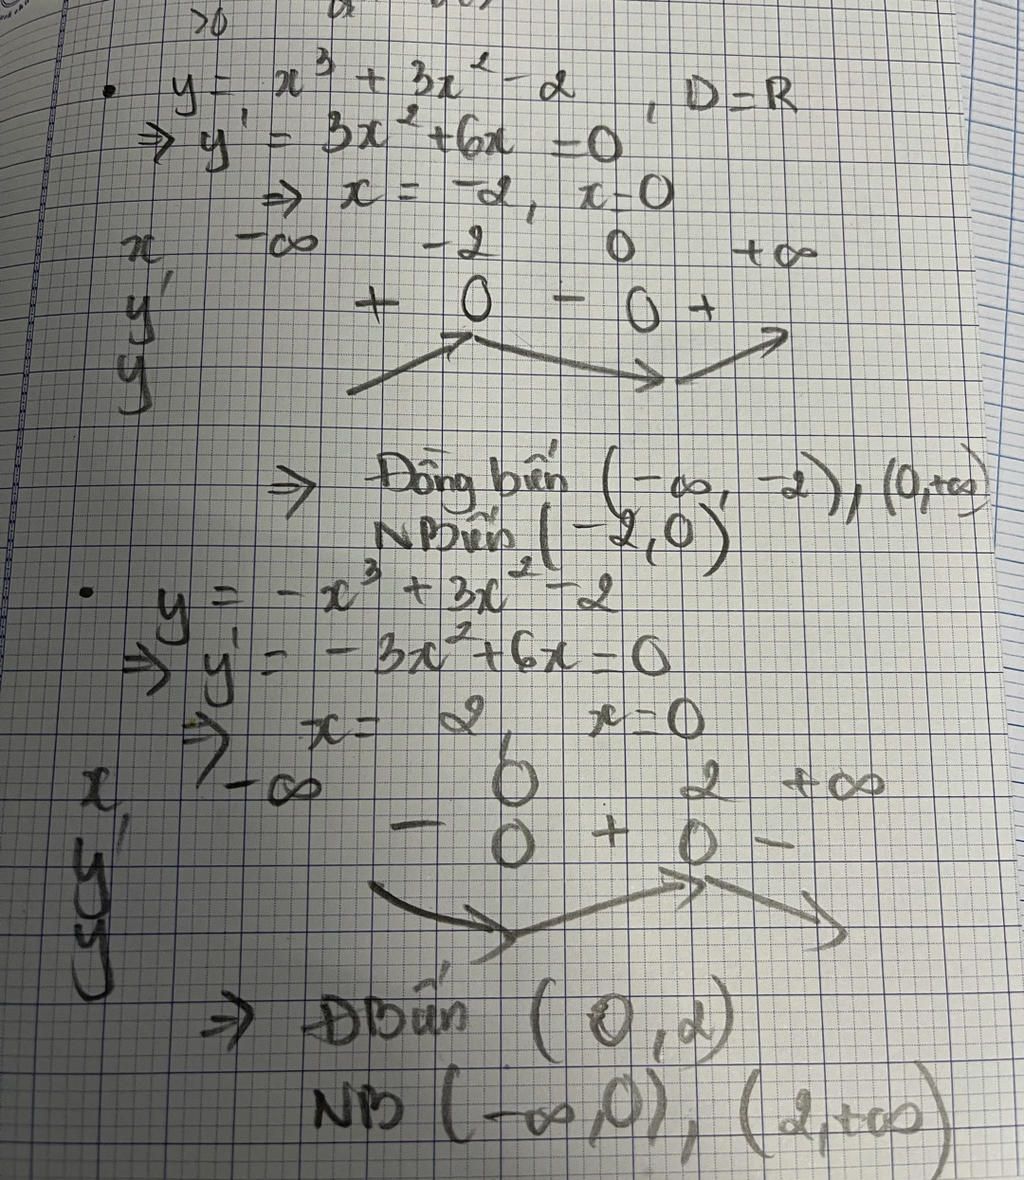 >0
• y = x³ + 3x² - 2 , D = R
⇒ y' = 3x² + 6x = 0
⇒ x = -2, x = 0
x -∞ -2 0 +∞
y' + 0 - 0 +
y
⇒ Đồng biến (-∞, -2), (0, +∞)
NBiến (-2, 0)
• y = -x³ + 3x² - 2
⇒ y' = -3x² + 6x = 0
⇒ x = 2, x = 0
x -∞ 0 2 +∞
y' - 0 + 0 -
y
⇒ ĐBiến (0, 2)
NB (-∞, 0), (2, +∞)